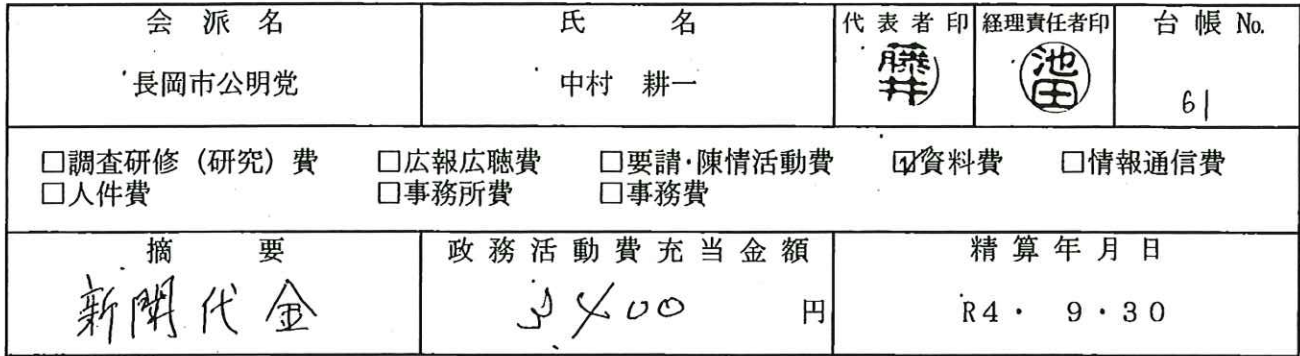 会派名 氏名 代表者印 経理責任者印 台帳No.
長岡市公明党 中村 耕一 藤井 池田 61
□調査研修(研究)費 □広報広聴費 □要請・陳情活動費 ☑資料費 □情報通信費
□人件費 □事務所費 □事務費
摘要 政務活動費充当金額 精算年月日
新聞代金 3400 円 R4・ 9・30